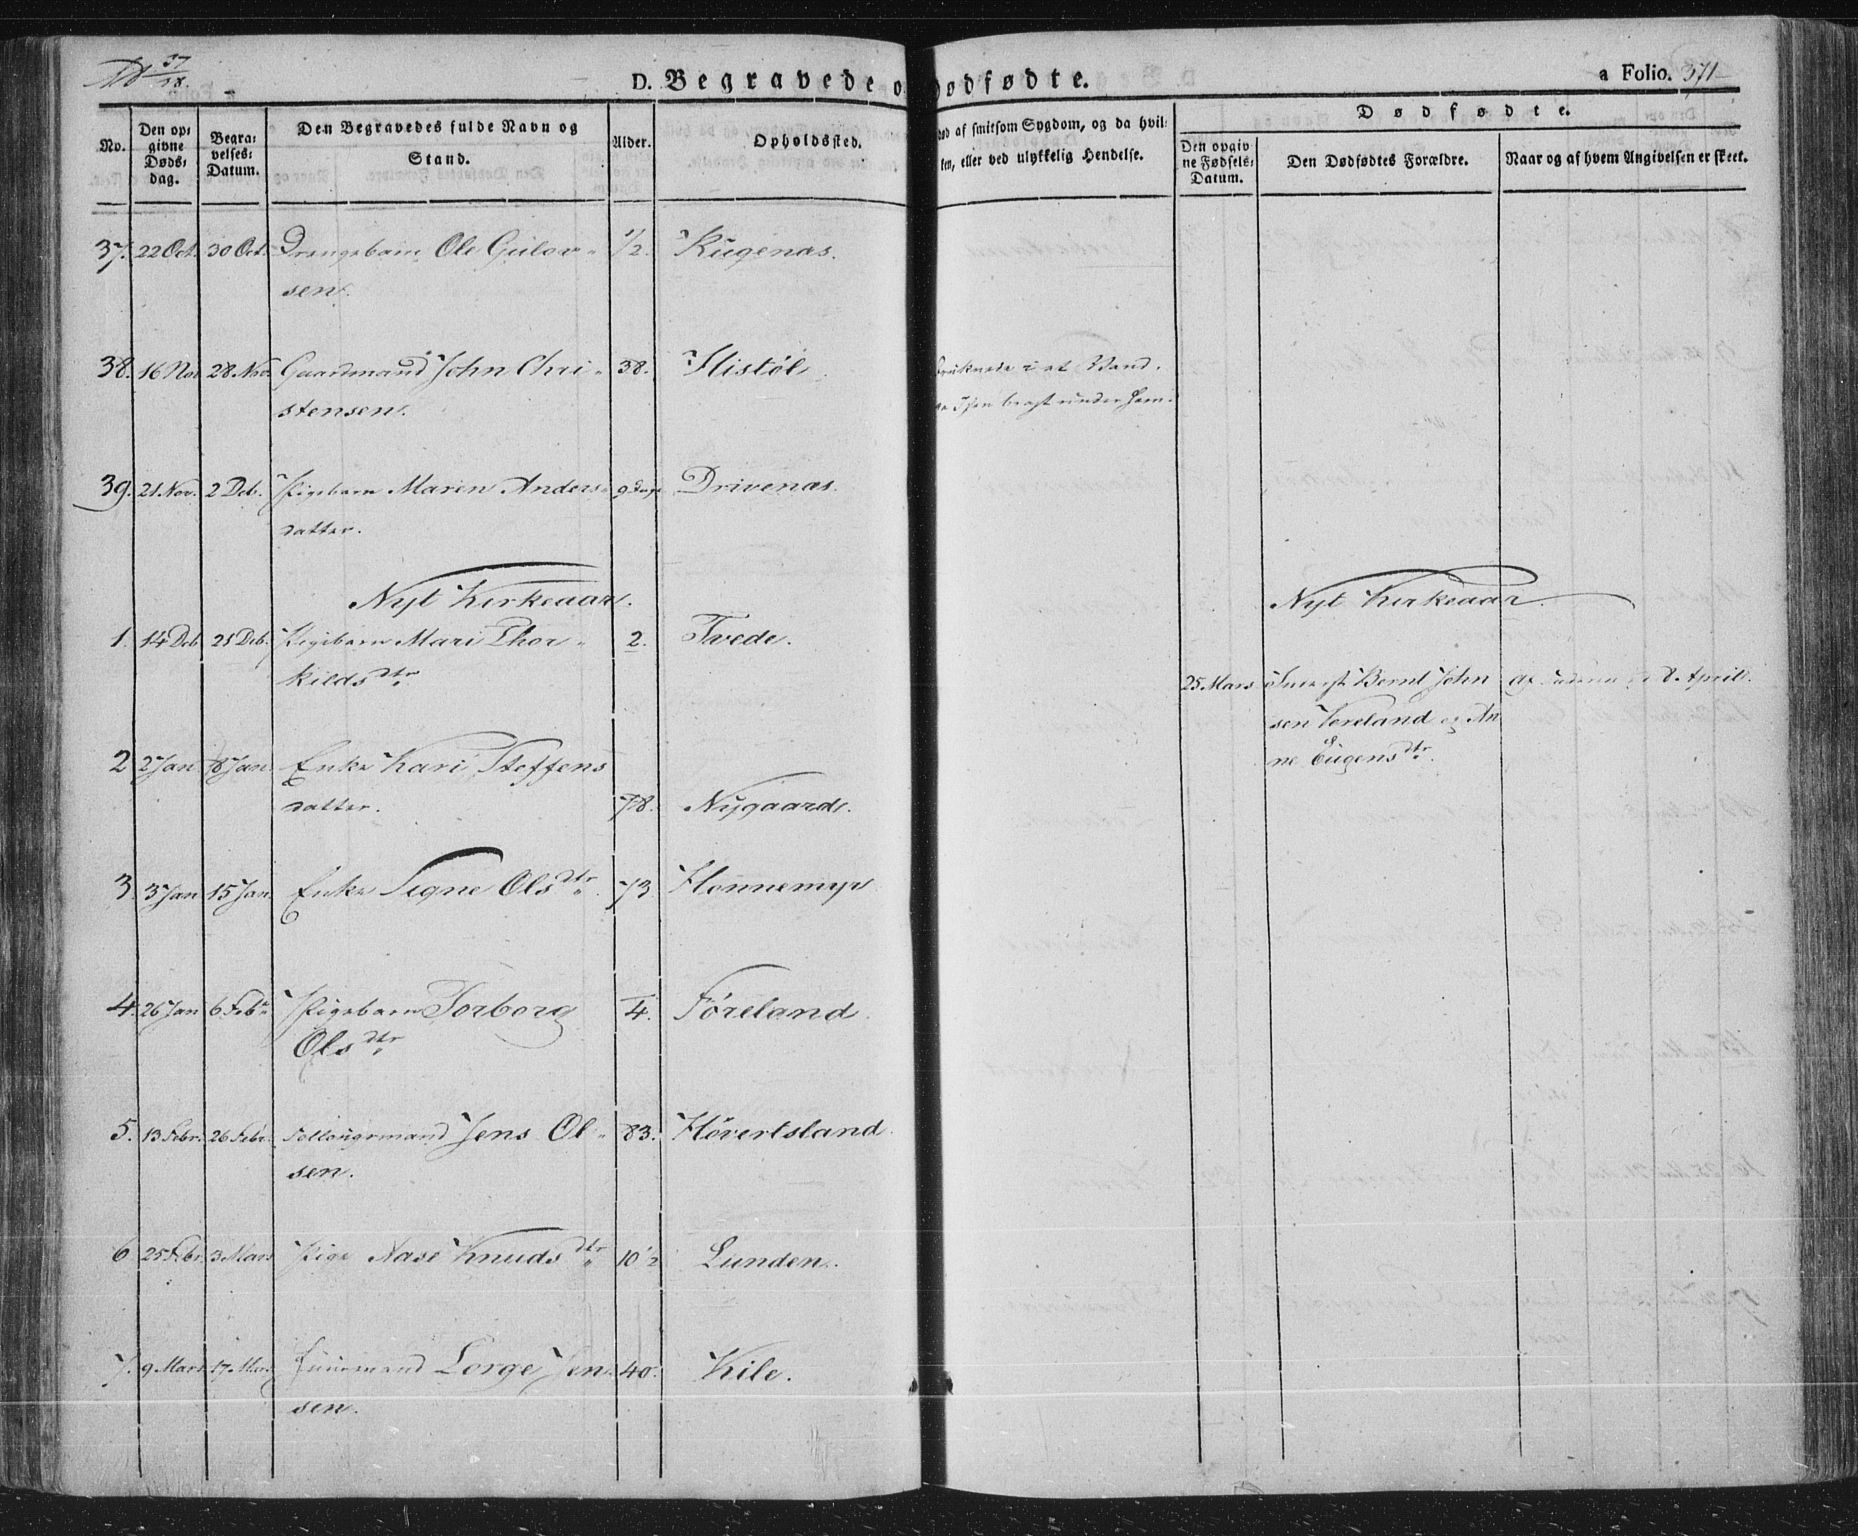 37/38.
D. Begravede o
Dødfødte.
a Folio. 371
No.
Den op:
givne
Døds:
dag.
Begra:
velses:
Datum.
Den Begravedes fulde Navn og
Stand.
Alder.
Opholdssted.
ød af smitsom Sygdom, og da hvil:
ken, eller ved ulykkelig Hendelse.
Dødfødte.
Den opgiv
ne Fødsels:
Datum.
Den Dødfødtes Forældre.
Naar og af hvem Angivelsen er skeet.
37. 22 Oct. 30 Oct. Drengebarn Ole Gulov- 1/2. Rugenas.
sen.
38. 16 Nov 28 Nov. Gaardmand John Chri- 38. Histøl
stensen.
Druknede i et Vand.
39. 21 Nov. 2 Deb. Pigebarn Maren Anders- 9 Dage Drivenas.
datter.
Nyt Kirkeaar.
Nyt Kirkeaar.
1. 14 Deb 25 Deb. Pigebarn Mari Thor- 2. Tvede.
kilds dtr
25 Mars Bernt John 8 April.
sen Foreland og An
ne Eugens dtr.
2 2 Jan 8 Jan Enke Kari Steffens
datter. 78. Nygaard.
3. 3 Jan 15 Jan. Enke Signe Ols dtr. 73 Honnemyr
4. 26 Jan 6 Feb. Pigebarn Torborg 1/4. Føreland.
Ols dtr
5. 13 Febr. 26 Febr. Follougsmand Jens Ol- 83. Hövertsland.
sen.
6 25 Febr. 3 Mars Pige Aase Knuds dtr 10 1/2 Lunden.
7. 9 Mars 17 Mars Huusmand Jen- 40. Kile.
sen.